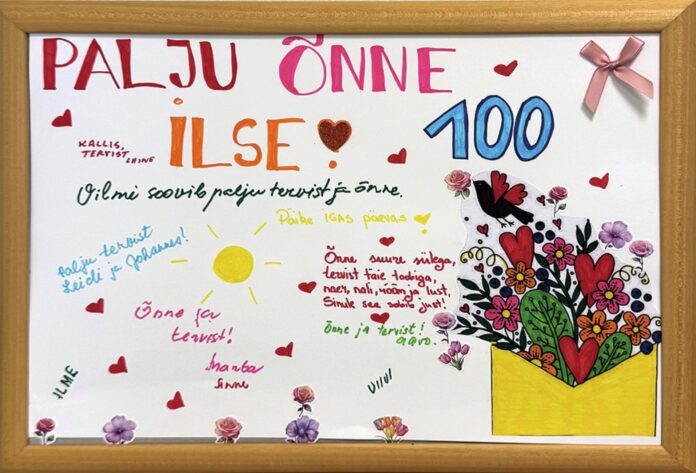 PALJU ÕNNE
ILSE!
100
KALLIS,
TERVIST
Vilmi soovib palju tervist ja õnne.
Päike IGAS päevas!
palju tervist
Leidi ja Johannes!
Õnne suure sülega,
tervist täie toobiga,
naer, nali, rõõm ja lust,
Sinule see sobib just!
Õnne ja
tervist!
õnne ja tervist!
aavo.
Manta
ILME
VIIVI